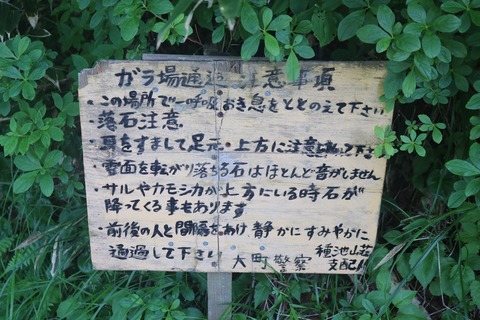 ガラ場通過 注意事項
・この場所で一呼吸おき息をととのえて下さい
・落石注意
・耳をすまして足元・上方に注意して下さ
・雪面を転がり落ちる石はほとんど音がしません
・サルやカモシカが上方にいる時石が
降ってくる事もあります
・前後の人と間隔をあけ静かにすみやかに
通過して下さい 大町警察 種池山荘
支配人